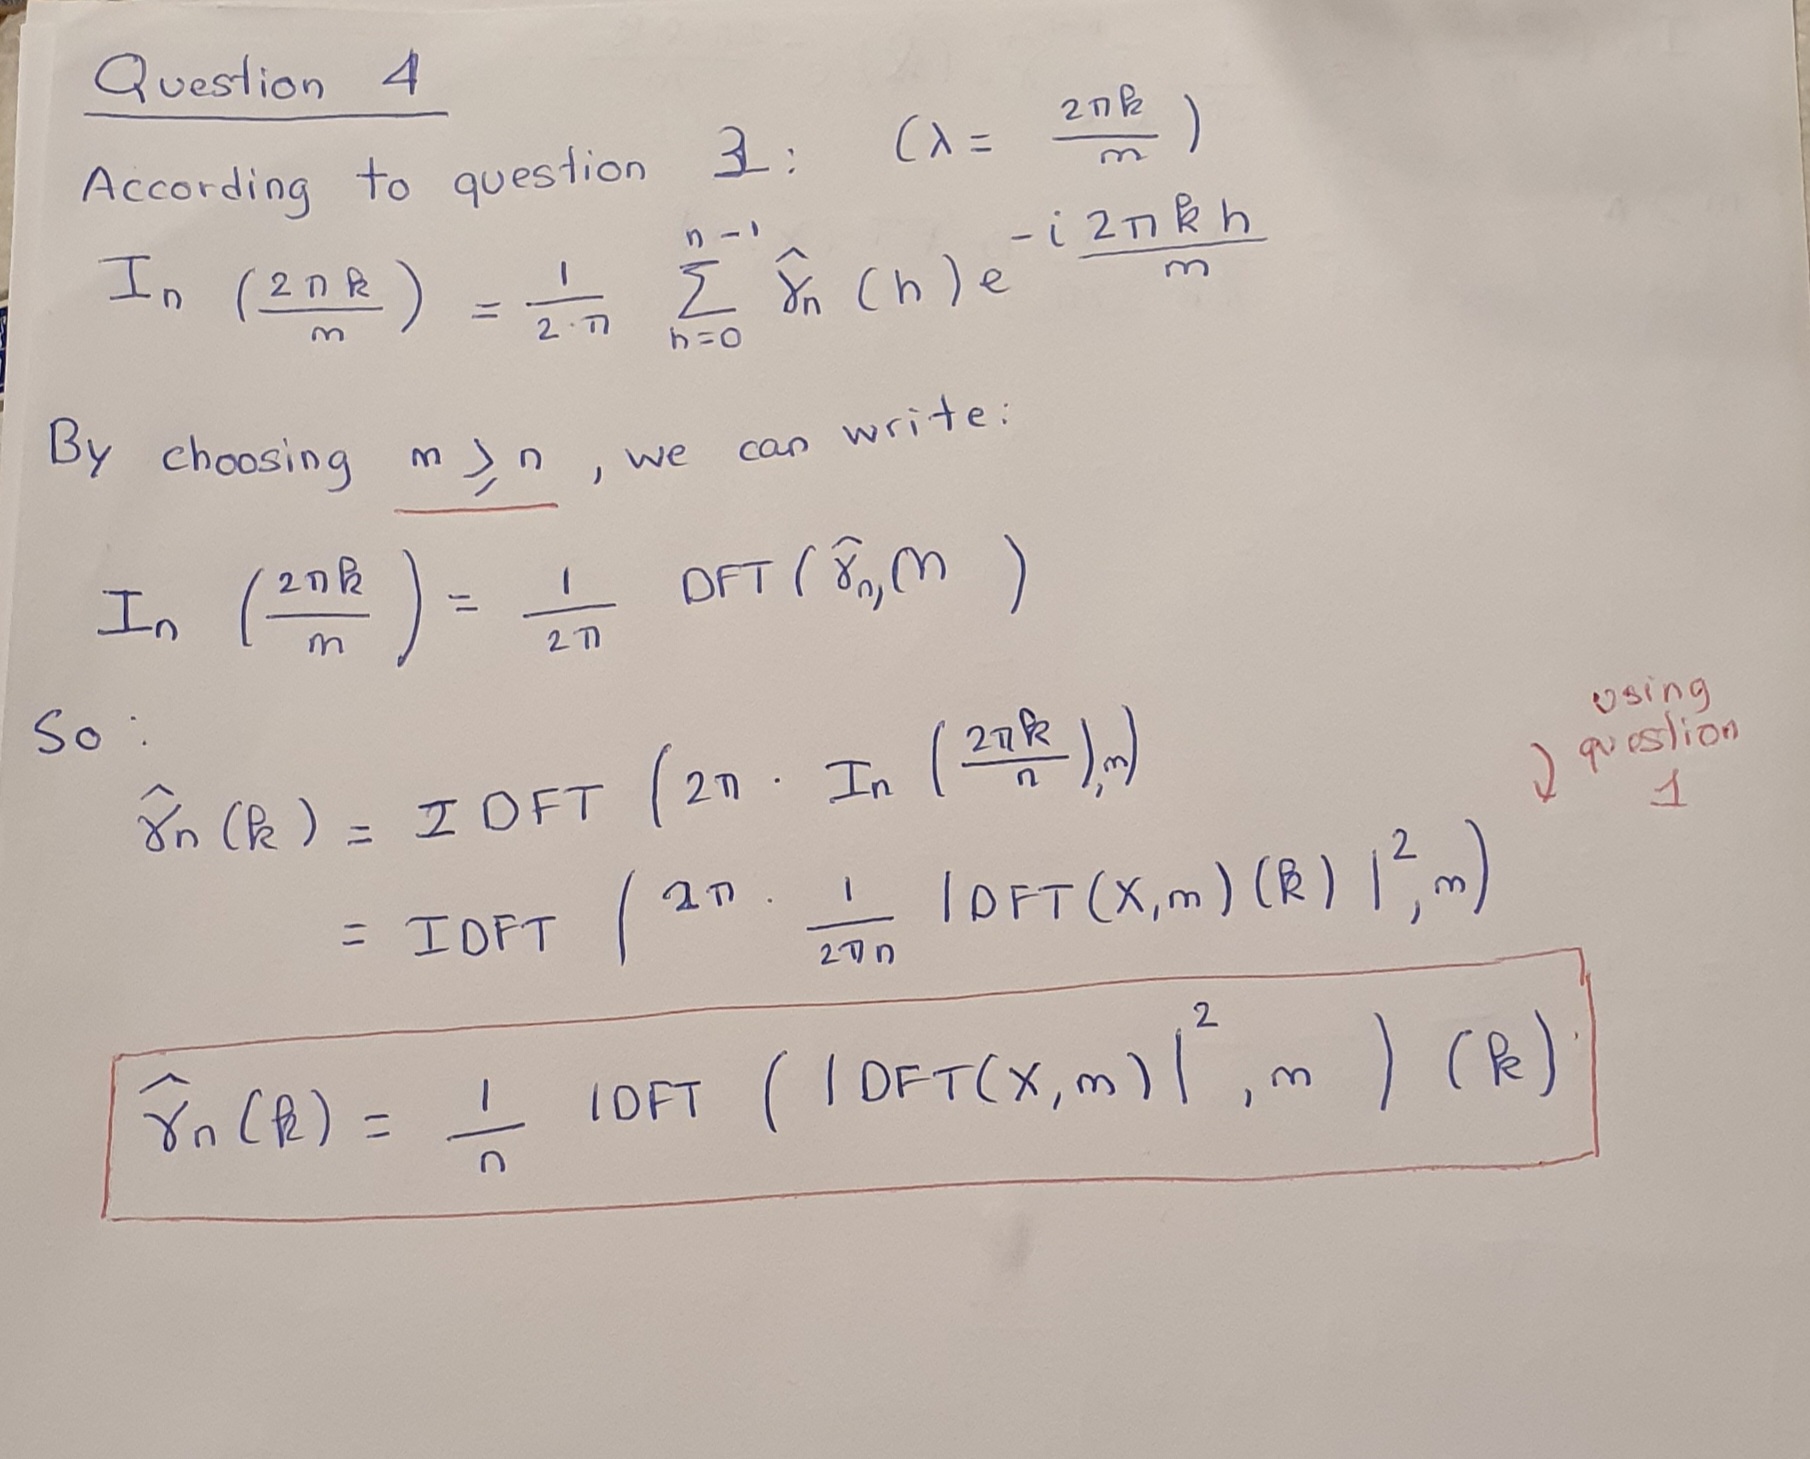 Question 4
According to question 3: (λ = 2πk/m)
In (2πk/m) = 1/2·π Σ_{h=0}^{n-1} γ̂n (h) e^{-i 2πkh/m}
By choosing m ⩾ n , we can write:
In (2πk/m) = 1/2π DFT (γ̂n, m )
So :
using question 1
γ̂n (k) = IDFT (2π · In (2πk/n), m)
= IDFT (2π · 1/2πn |DFT(X,m)(k)|², m)
γ̂n (k) = 1/n IDFT ( |DFT(X,m)|² , m ) (k).